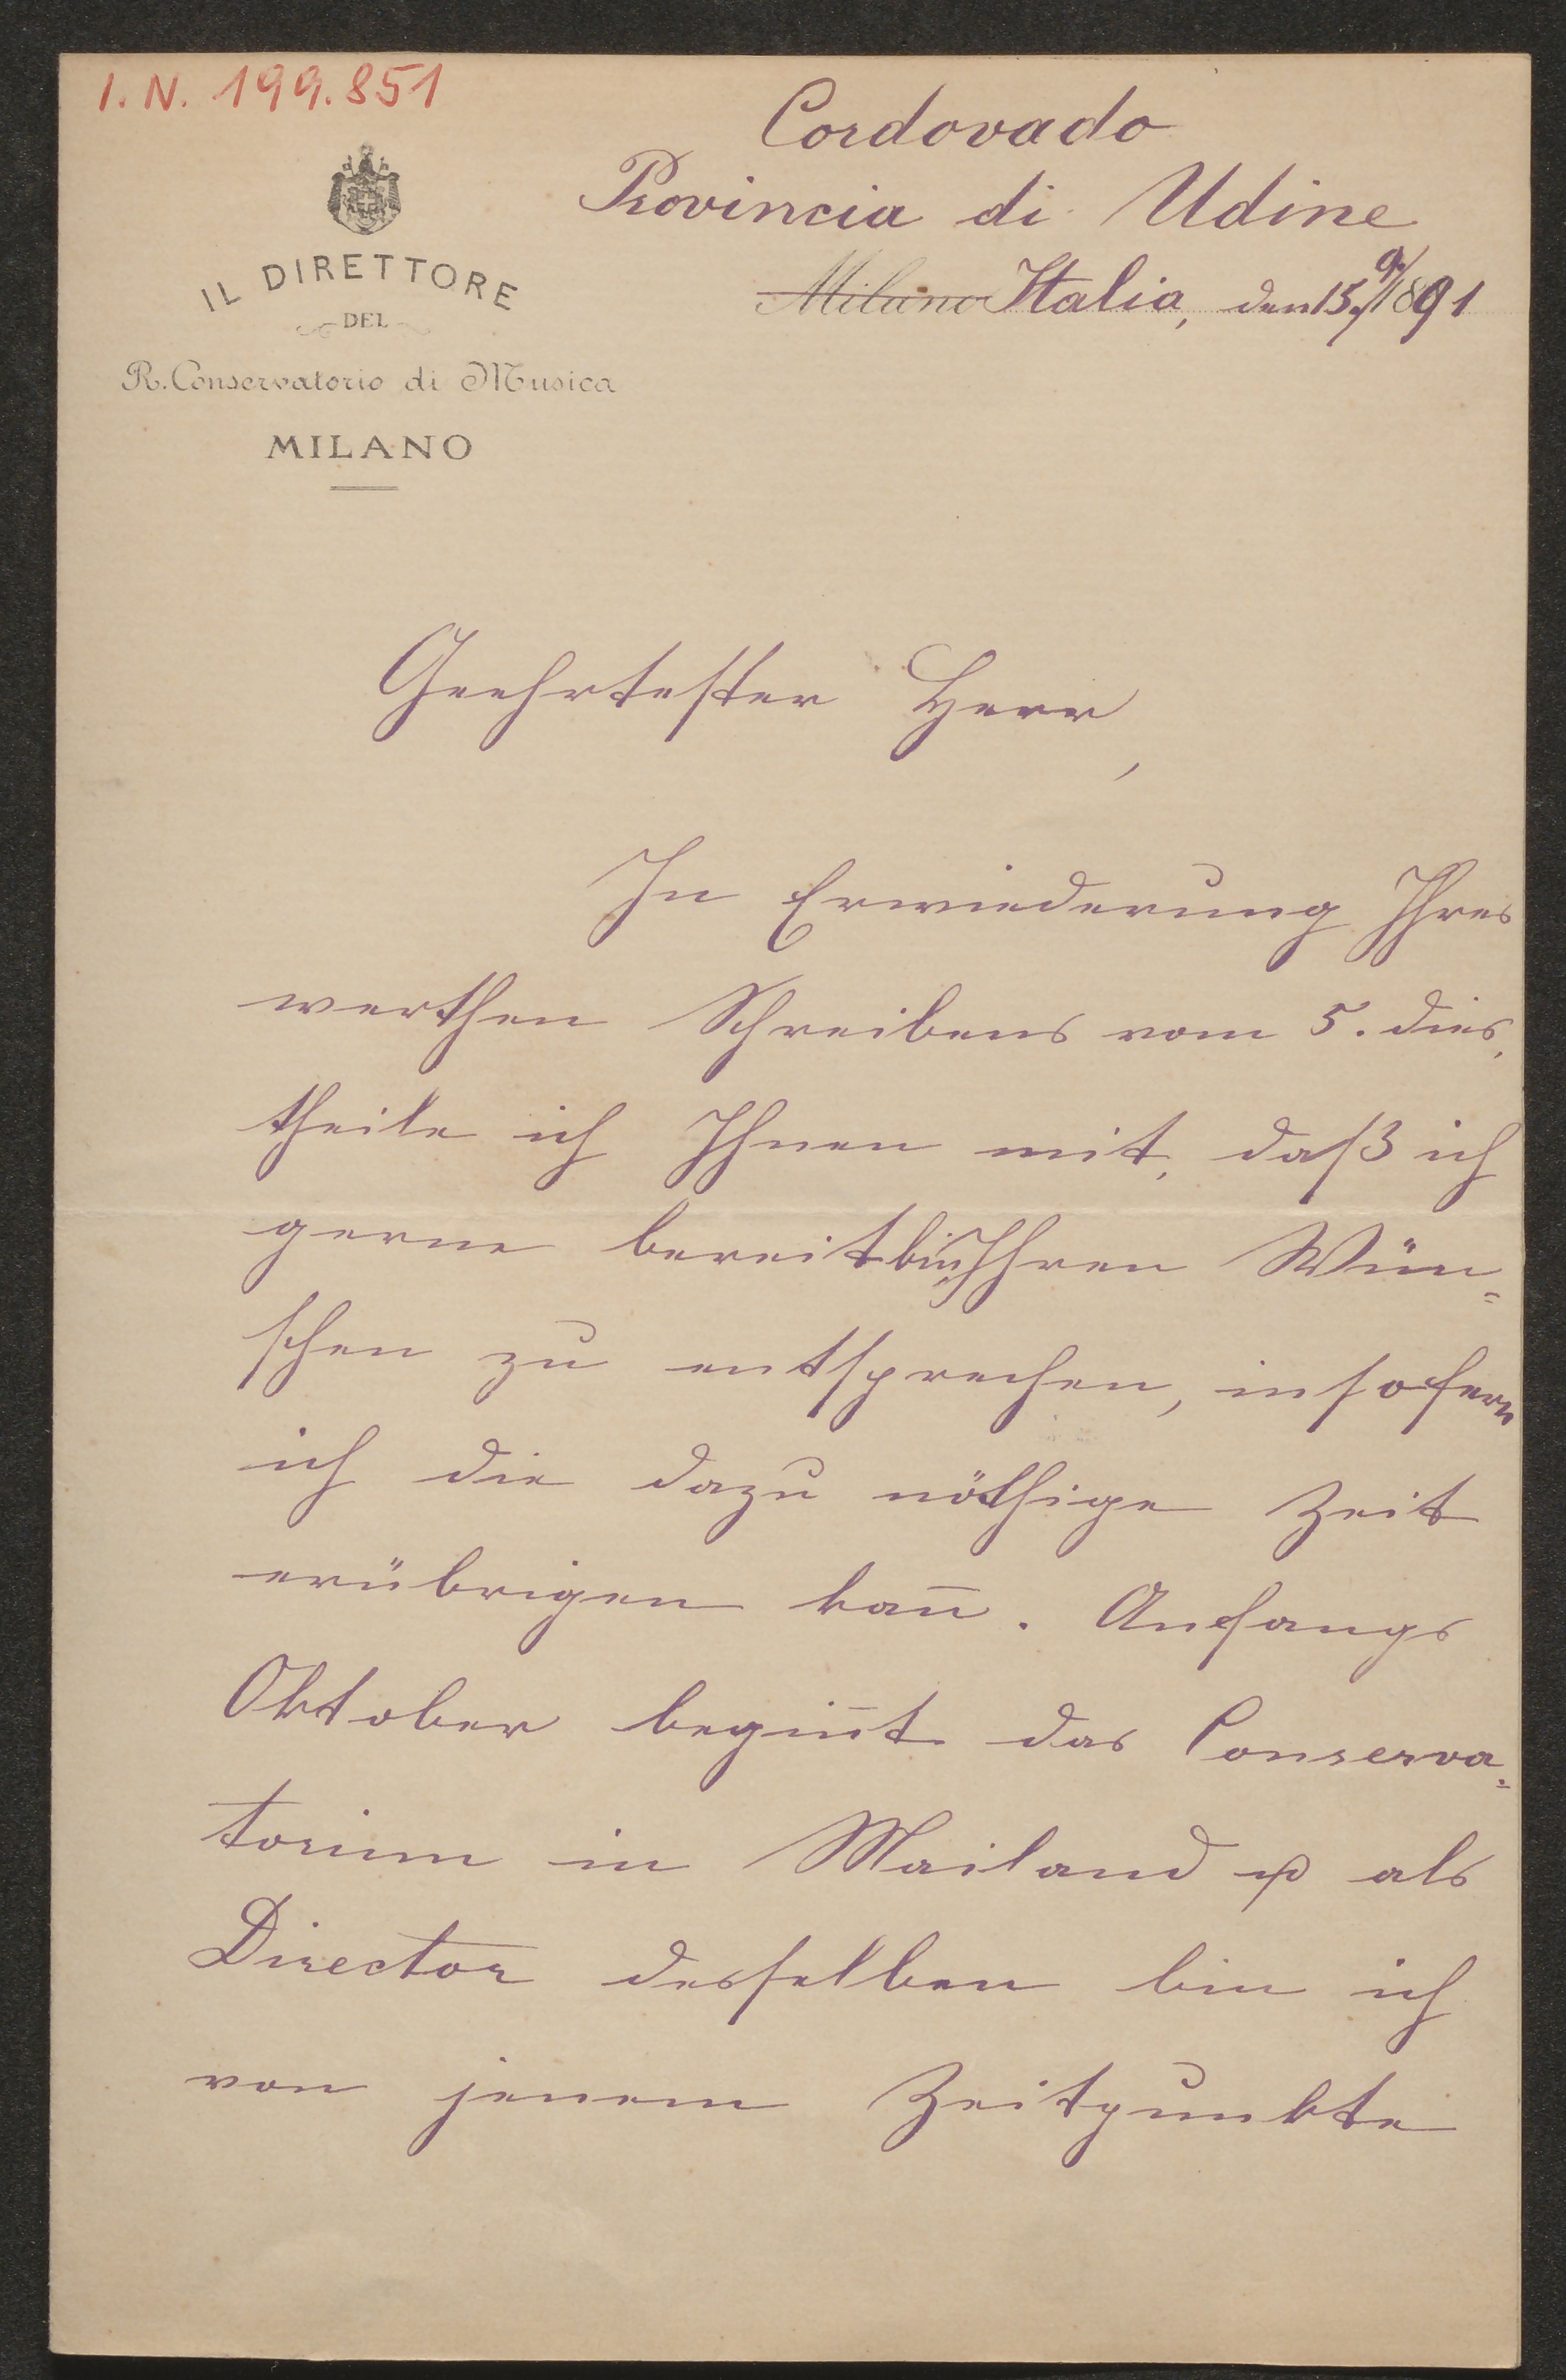 I. N. 199.851
Cordovado
Provincia di Udine
Milano Italia, den 15/9. 1891
IL DIRETTORE
DEL
R. Conservatorio di Musica
MILANO
Geehrtester Herr,
In Erwiederung Ihres
werthen Schreibens vom 5. dies,
theile ich Ihnen mit, daß ich
gerne bereit bin, Ihren Wün=
schen zu entsprechen, insofern
ich die dazu nöthige Zeit
erübrigen kan̄. Anfangs
Oktober begin̄t das Conserva=
torium in Mailand u als
Director desselben bin ich
von jenem Zeitpunkte